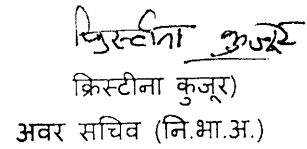 क्रिस्टीना कुजूर
क्रिस्टीना कुजूर)
अवर सचिव (नि.भा.अ.)